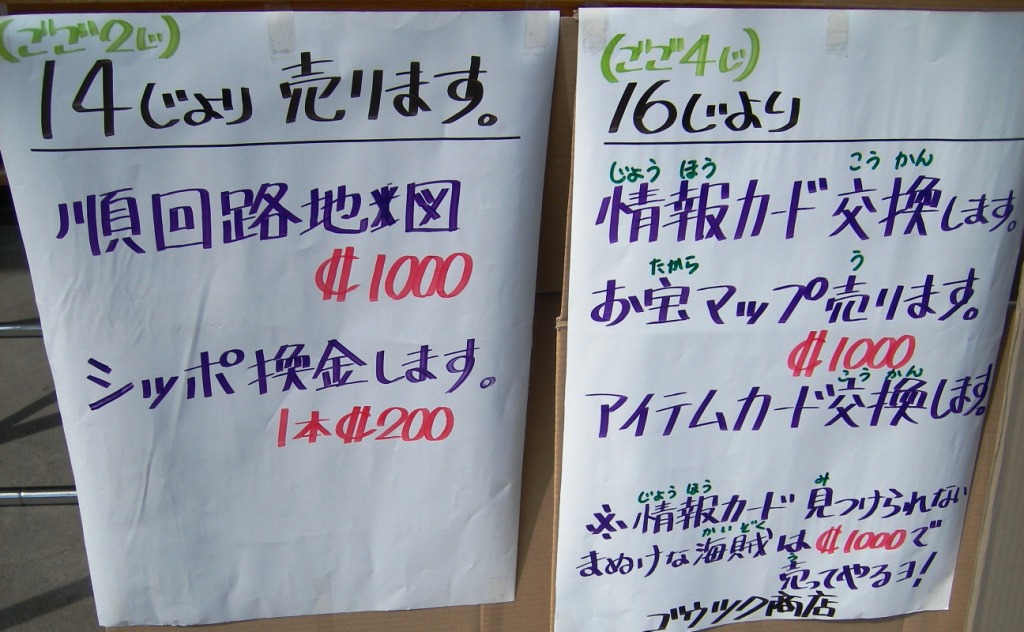 (ごご2じ)
14じより 売ります。
順回路地図
₵1000
シッポ換金します。
1本₵200
(ごご4じ)
16じより
じょう ほう こう かん
情報カード交換します。
たから う
お宝マップ売ります。
₵1000
こう かん
アイテムカード交換します。
じょう ほう み
※情報カード見つけられない
かいぞく
まぬけな海賊は₵1000で
う
売ってやるヨ!
ゴウツク商店